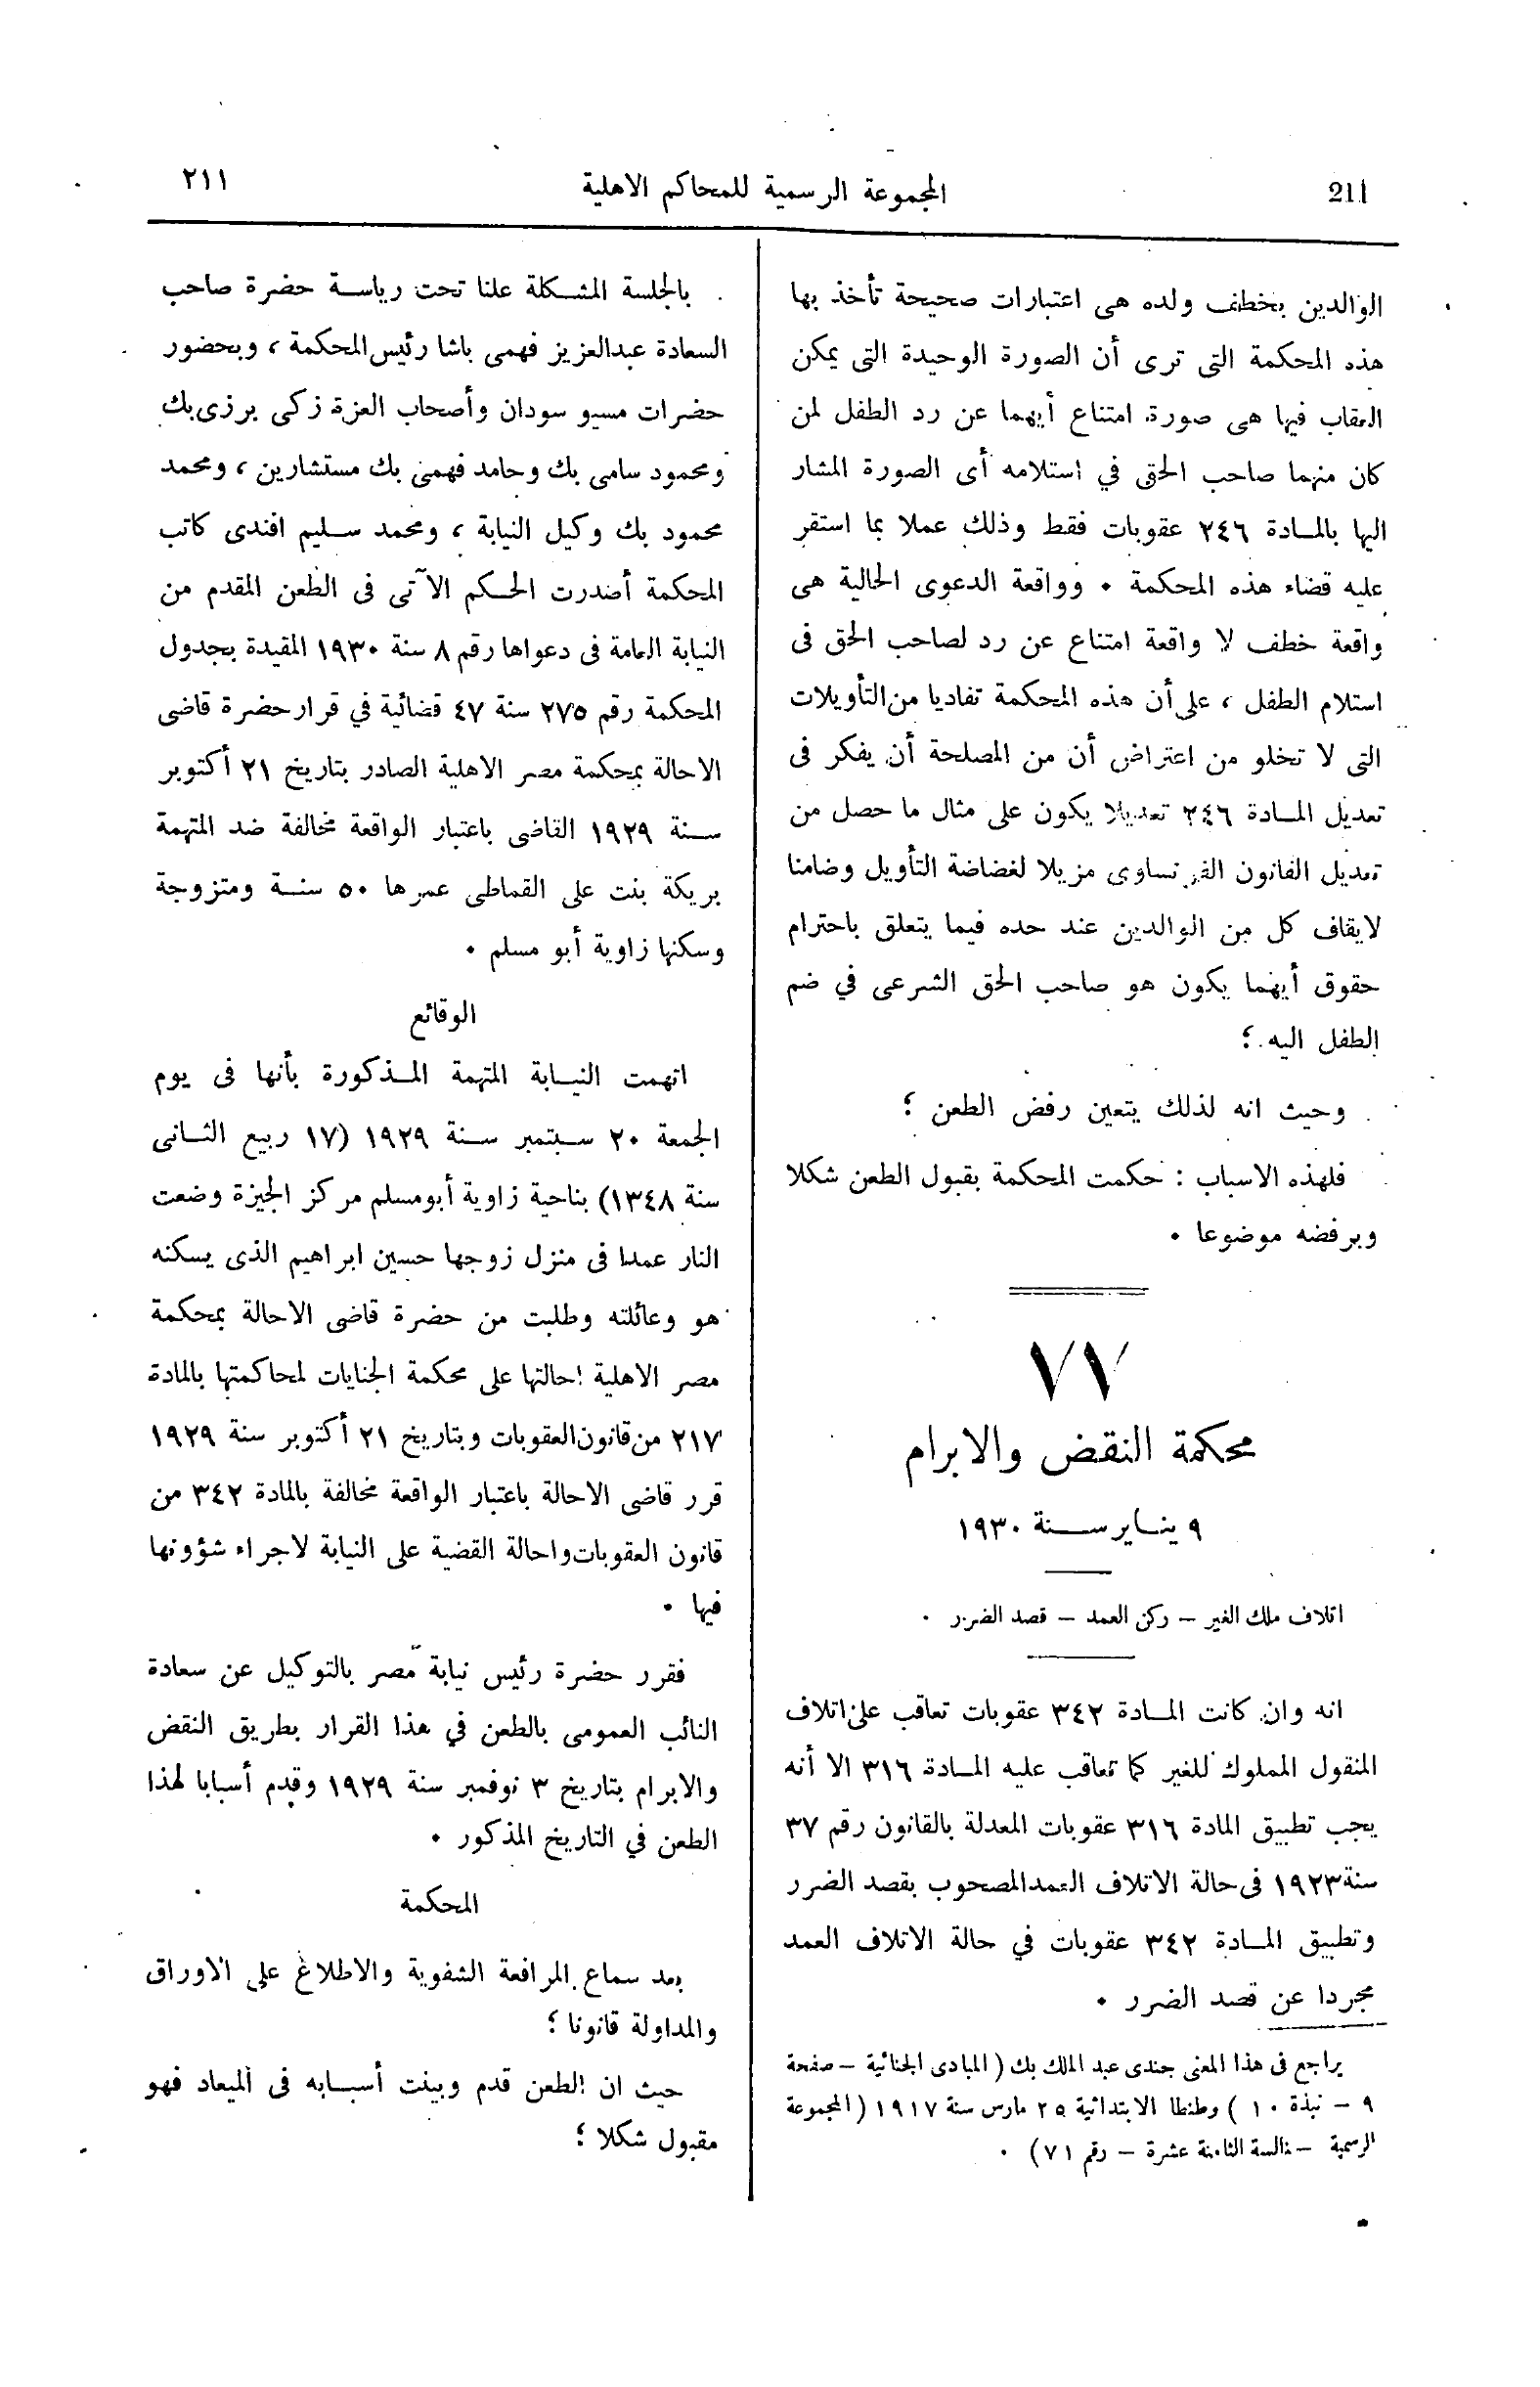 211
المجموعة الرسمية للمحاكم الاهلية
٢١١
الوالدين بخطف ولده هى اعتبارات صحيحة تأخذ بها
هذه المحكمة التى ترى أن الصورة الوحيدة التى يمكن
العقاب فيها هى صورة امتناع أيهما عن رد الطفل لمن
كان منهما صاحب الحق في استلامه أى الصورة المشار
اليها بالمادة ٢٤٦ عقوبات فقط وذلك عملا بما استقر
عليه قضاء هذه المحكمة . وواقعة الدعوى الحالية هى
واقعة خطف لا واقعة امتناع عن رد لصاحب الحق فى
استلام الطفل ، على أن هذه المحكمة تفاديا من التأويلات
التى لا تخلو من اعتراض أن من المصلحة أن يفكر فى
تعديل المادة ٢٤٦ تعديلا يكون على مثال ما حصل من
تعديل القانون الفرنساوى مزيلا لغضاضة التأويل وضامنا
لايقاف كل من الوالدين عند حده فيما يتعلق باحترام
حقوق أيهما يكون هو صاحب الحق الشرعى في ضم
الطفل اليه ؛
وحيث انه لذلك يتعين رفض الطعن ؛
فلهذه الاسباب : حكمت المحكمة بقبول الطعن شكلا
وبرفضه موضوعا .
٧٧
محكمة النقض والابرام
٩ يناير سنة ١٩٣٠
اتلاف ملك الغير – ركن العمد – قصد الضرر .
انه وان كانت المادة ٣٤٢ عقوبات تعاقب على اتلاف
المنقول المملوك للغير كما تعاقب عليه المادة ٣١٦ الا أنه
يجب تطبيق المادة ٣١٦ عقوبات المعدلة بالقانون رقم ٣٧
سنة ١٩٢٣ فى حالة الاتلاف العمد المصحوب بقصد الضرر
وتطبيق المادة ٣٤٢ عقوبات في حالة الاتلاف العمد
مجردا عن قصد الضرر .
يراجع فى هذا المعنى جندى عبد الملك بك ( المبادى الجنائية – صفحة
٩ – نبذة ١٠ ) وطنطا الابتدائية ٢٥ مارس سنة ١٩١٧ ( المجموعة
الرسمية – السنة الثامنة عشرة – رقم ٧١ ) .
بالجلسة المشكلة علنا تحت رياسة حضرة صاحب
السعادة عبد العزيز فهمى باشا رئيس المحكمة ، وبحضور
حضرات مسيو سودان وأصحاب العزة زكى برزى بك
ومحمود سامى بك وحامد فهمى بك مستشارين ، ومحمد
محمود بك وكيل النيابة ، ومحمد سليم افندى كاتب
المحكمة أصدرت الحكم الآتى فى الطعن المقدم من
النيابة العامة فى دعواها رقم ٨ سنة ١٩٣٠ المقيدة بجدول
المحكمة رقم ٢٧٥ سنة ٤٧ قضائية في قرار حضرة قاضى
الاحالة بمحكمة مصر الاهلية الصادر بتاريخ ٢١ أكتوبر
سنة ١٩٢٩ القاضى باعتبار الواقعة مخالفة ضد المتهمة
بريكة بنت على القماطى عمرها ٥٠ سنة ومتزوجة
وسكنها زاوية أبو مسلم .
الوقائع
اتهمت النيابة المتهمة المذكورة بأنها فى يوم
الجمعة ٢٠ سبتمبر سنة ١٩٢٩ (١٧ ربيع الثانى
سنة ١٣٤٨) بناحية زاوية أبومسلم مركز الجيزة وضعت
النار عمدا فى منزل زوجها حسين ابراهيم الذى يسكنه
هو وعائلته وطلبت من حضرة قاضى الاحالة بمحكمة
مصر الاهلية احالتها على محكمة الجنايات لمحاكمتها بالمادة
٢١٧ من قانون العقوبات وبتاريخ ٢١ أكتوبر سنة ١٩٢٩
قرر قاضى الاحالة باعتبار الواقعة مخالفة بالمادة ٣٤٢ من
قانون العقوبات واحالة القضية على النيابة لاجراء شؤونها
فيها .
فقرر حضرة رئيس نيابة مصر بالتوكيل عن سعادة
النائب العمومى بالطعن في هذا القرار بطريق النقض
والابرام بتاريخ ٣ نوفمبر سنة ١٩٢٩ وقدم أسبابا لهذا
الطعن في التاريخ المذكور .
المحكمة
بعد سماع المرافعة الشفوية والاطلاع على الاوراق
والمداولة قانونا ؛
حيث ان الطعن قدم وبينت أسبابه فى الميعاد فهو
مقبول شكلا ؛